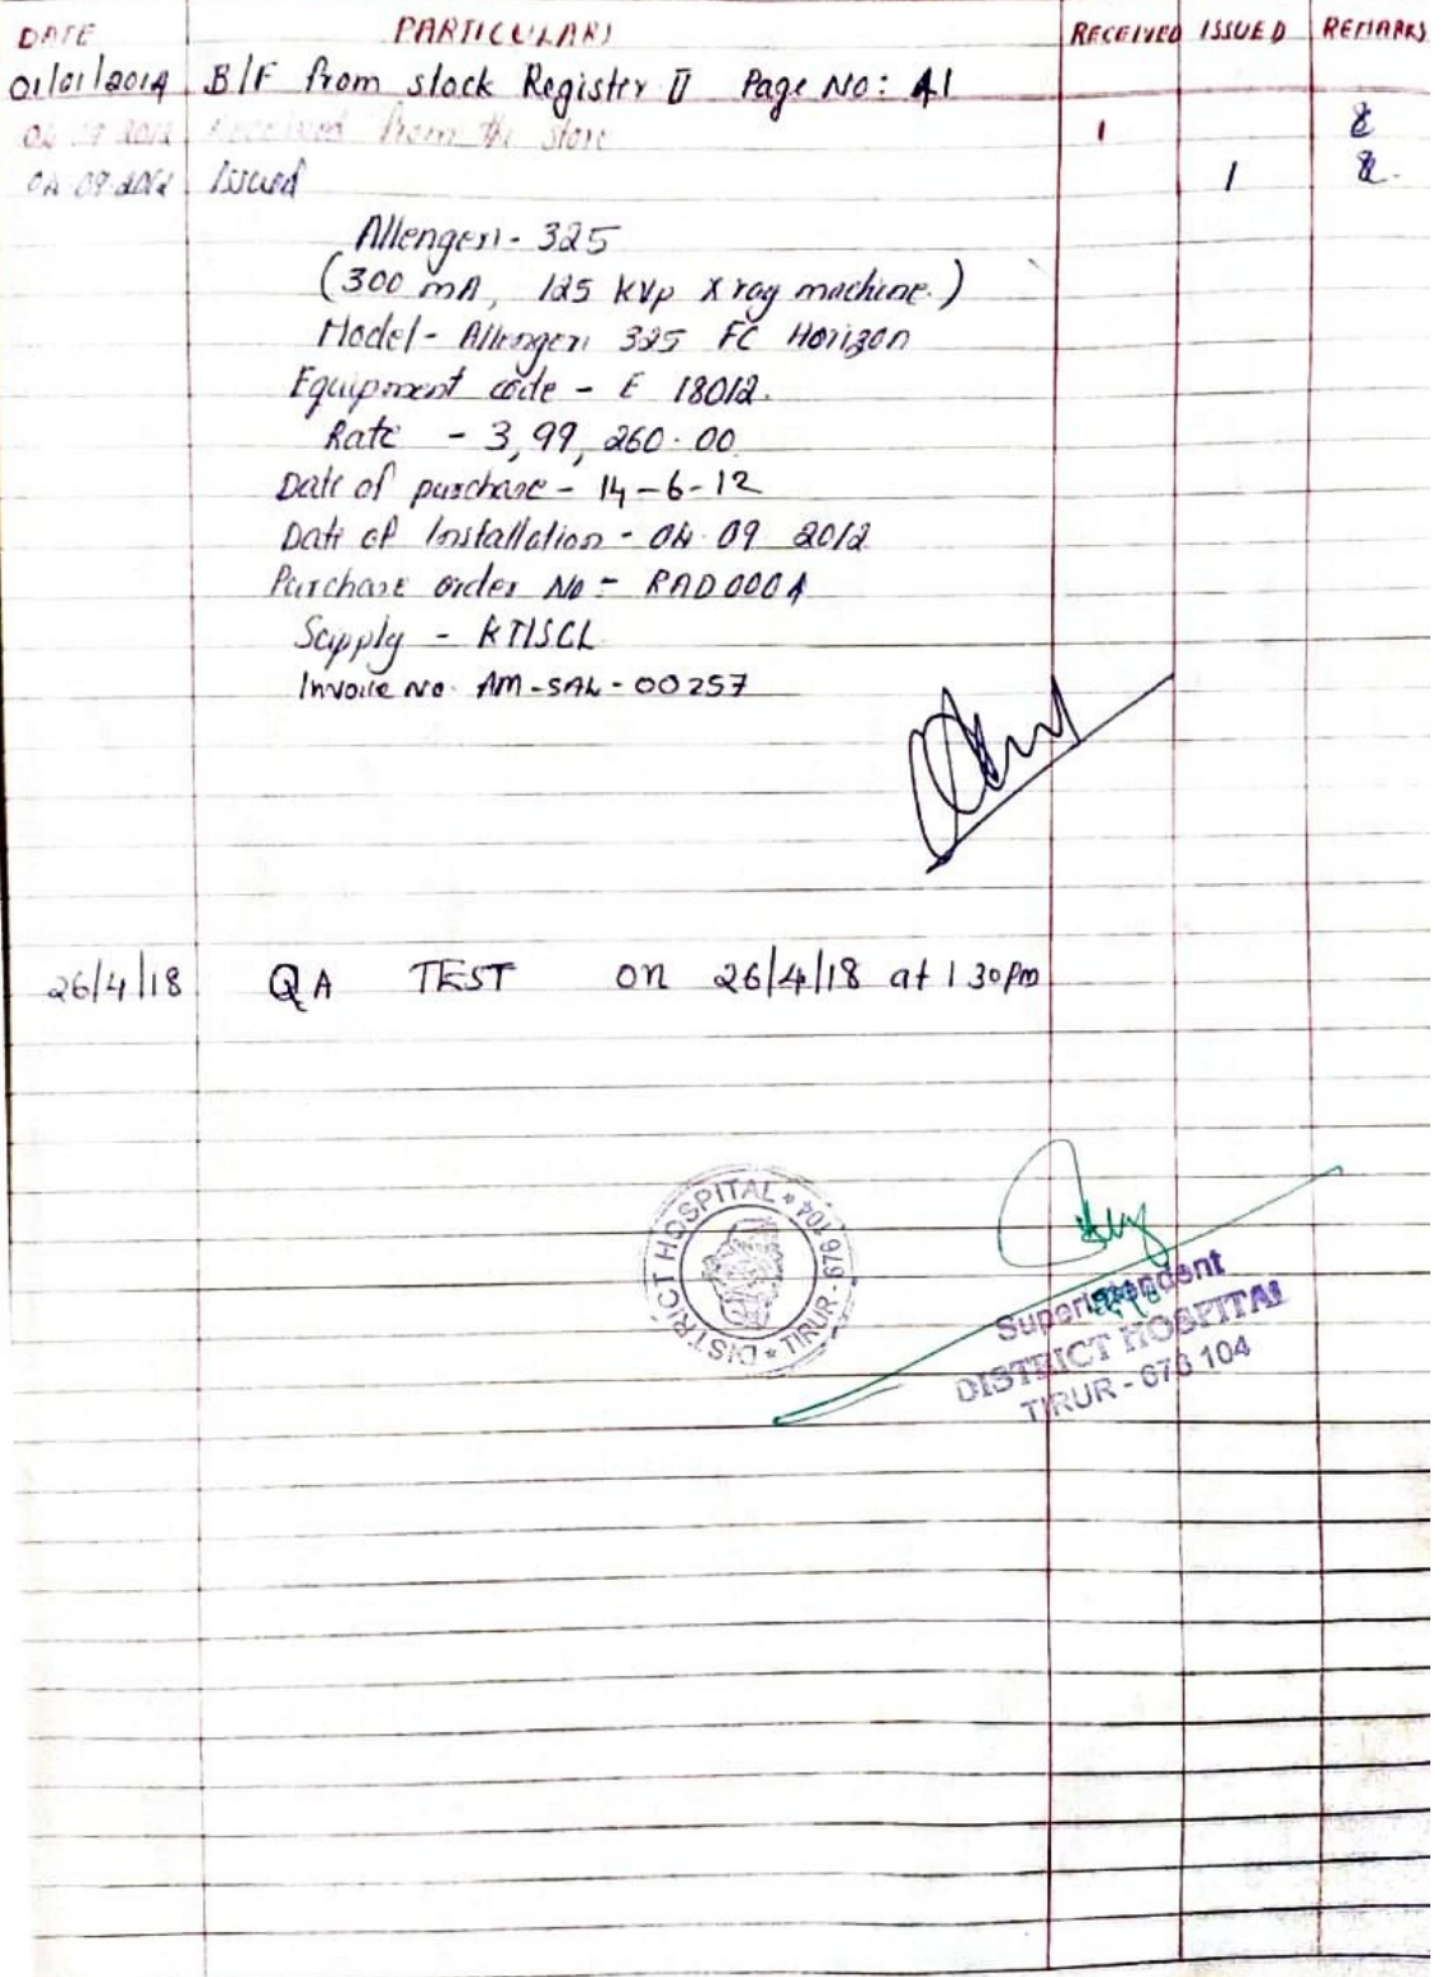 DATE PARTICULARS RECEIVED ISSUED REMARKS
01/01/2014 B/F from stock Register II Page No: 41
04 09 2012 Received from the store 1
04 09 2012 Issued 1
Allengers - 325
(300 mA, 125 kVp X ray machine.)
Model - Allengers 325 FC Horizon
Equipment code - E 18012.
Rate - 3,99,260.00
Date of purchase - 14-6-12
Date of Installation - 04.09 2012
Purchase order No - RAD0004
Supply - KMSCL
Invoice No. AM-SAL-00257
26/4/18 QA TEST on 26/4/18 at 1 30pm
DISTRICT HOSPITAL * TIRUR - 676 104 *
Superintendent
DISTRICT HOSPITAL
TIRUR - 676 104